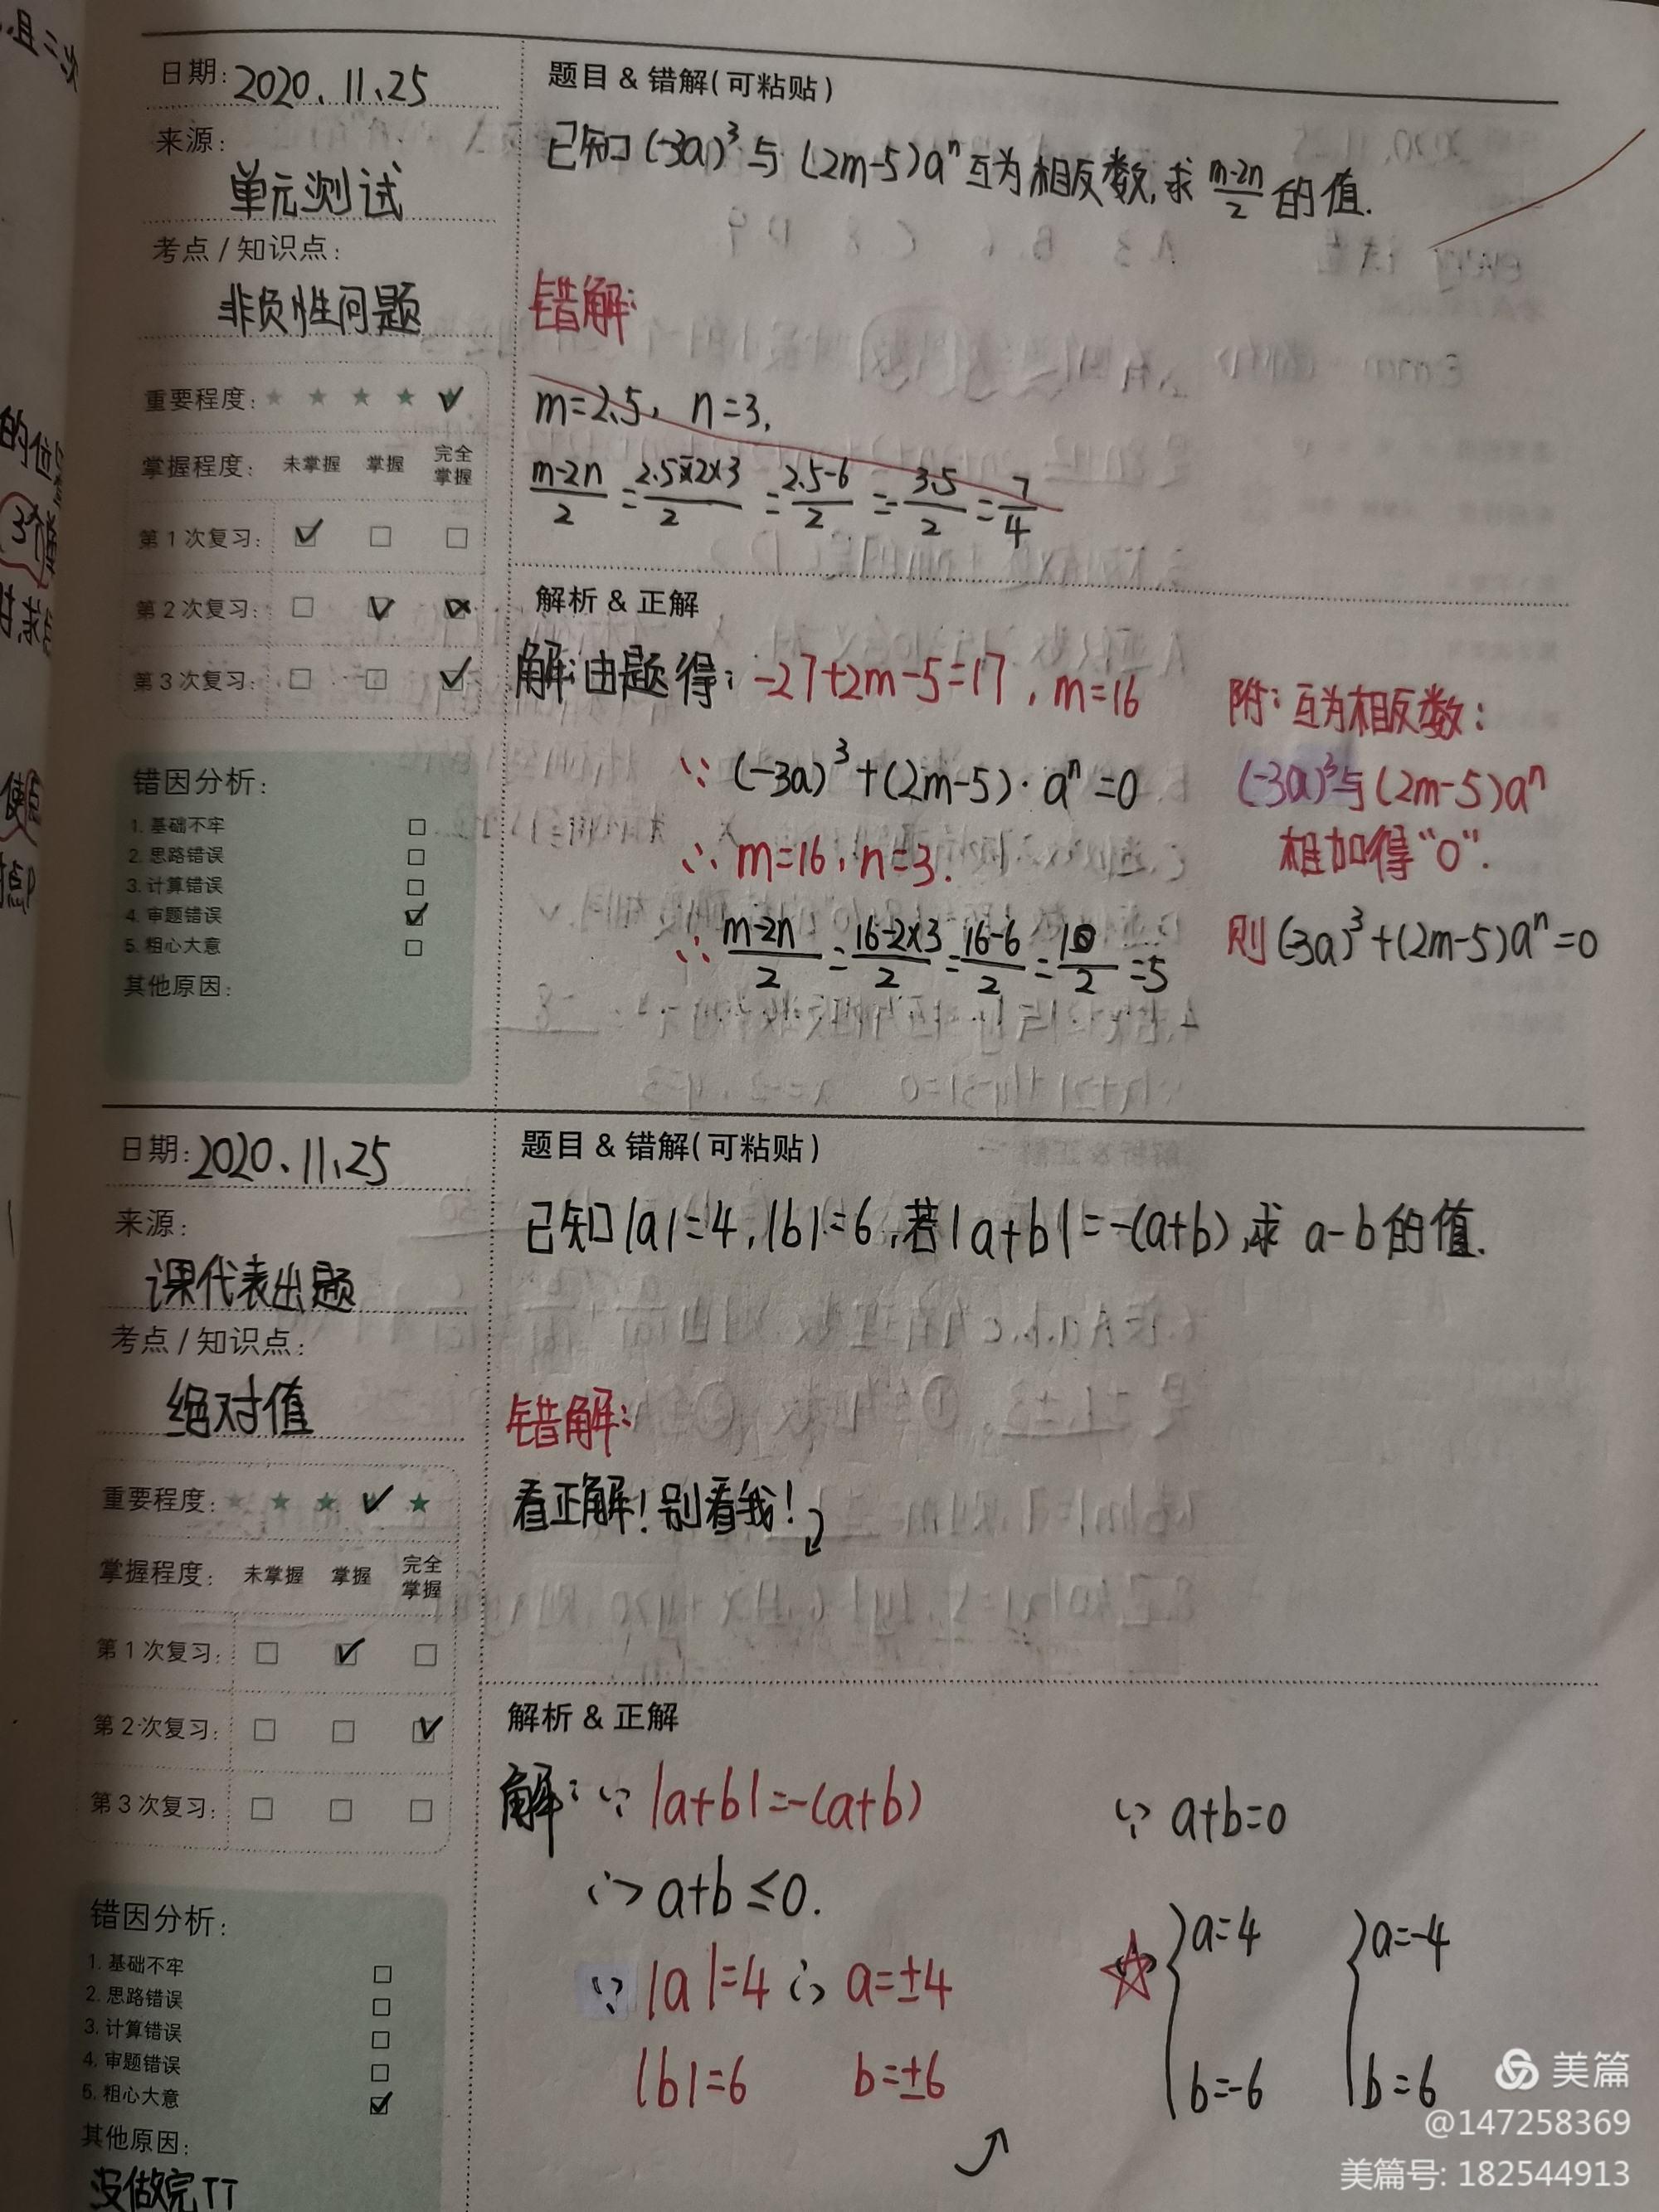 日期: 2020.11.25
来源:
单元测试
考点 / 知识点:
非负性问题
重要程度: ★ ★ ★ ★ ✓
掌握程度: 未掌握 掌握 完全掌握
第1次复习: ☑ □ □
第2次复习: □ ☑ ☒
第3次复习: □ □ ☑
错因分析:
1. 基础不牢 □
2. 思路错误 □
3. 计算错误 □
4. 审题错误 ☑
5. 粗心大意 □
其他原因:
题目 & 错解(可粘贴)
已知(-3a)³与(2m-5)aⁿ互为相反数,求(m-2n)/2的值.
错解:
m=2.5, n=3,
(m-2n)/2=(2.5-2×3)/2=(2.5-6)/2=-3.5/2=7/4
解析 & 正解
解:由题得: -27+2m-5=17, m=16
∵(-3a)³+(2m-5)·aⁿ=0
∴m=16, n=3.
∴(m-2n)/2=(16-2×3)/2=(16-6)/2=10/2=5
附: 互为相反数:
(-3a)³与(2m-5)aⁿ
相加得“0”.
则(-3a)³+(2m-5)aⁿ=0
日期: 2020.11.25
来源:
课代表出题
考点 / 知识点:
绝对值
重要程度: ★ ★ ★ ✓ ★
掌握程度: 未掌握 掌握 完全掌握
第1次复习: □ ☑ □
第2次复习: □ □ ☑
第3次复习: □ □ □
错因分析:
1. 基础不牢 □
2. 思路错误 □
3. 计算错误 □
4. 审题错误 □
5. 粗心大意 ☑
其他原因:
没做完TT
题目 & 错解(可粘贴)
已知|a|=4,|b|=6,若|a+b|=-(a+b),求 a-b的值.
错解:
看正解!别看我!
解析 & 正解
解:∵|a+b|=-(a+b)
∴a+b≤0.
∵|a|=4∴a=±4
|b|=6 b=±6
∵a+b=0
☆{a=4 {a=-4
b=-6 b=6
美篇
@147258369
美篇号: 182544913